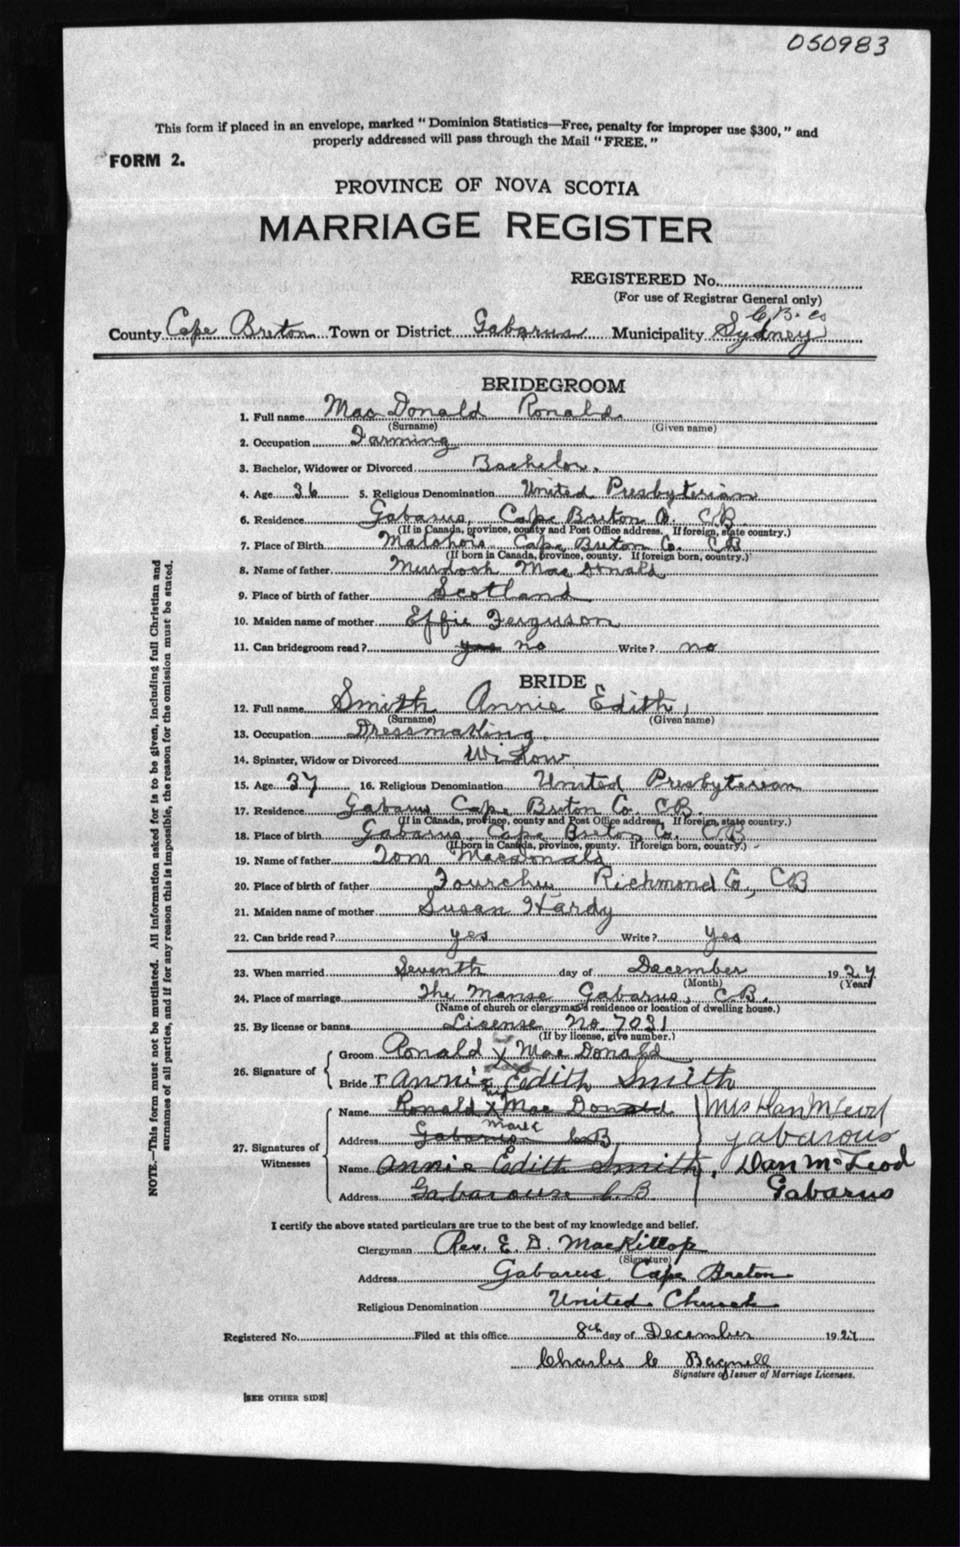 050983
This form if placed in an envelope, marked "Dominion Statistics—Free, penalty for improper use $300," and
properly addressed will pass through the Mail "FREE."
FORM 2.
PROVINCE OF NOVA SCOTIA
MARRIAGE REGISTER
REGISTERED No.
(For use of Registrar General only)
C. B. Co
County Cape Breton Town or District Gabarus Municipality Sydney
BRIDEGROOM
1. Full name MacDonald Ronald
(Surname) (Given name)
2. Occupation Farming
3. Bachelor, Widower or Divorced Bachelor.
4. Age 36 5. Religious Denomination United Presbyterian
6. Residence Gabarus, Cape Breton Co. CB
(If in Canada, province, county and Post Office address. If foreign, state country.)
7. Place of Birth Cape Breton Co. CB
(If born in Canada, province, county. If foreign born, country.)
8. Name of father Murdoch MacDonald
9. Place of birth of father Scotland
10. Maiden name of mother Effie Ferguson
11. Can bridegroom read? yes no Write? no
BRIDE
12. Full name Smith Annie Edith,
(Surname) (Given name)
13. Occupation Dressmaking.
14. Spinster, Widow or Divorced Widow
15. Age 37 16. Religious Denomination United Presbyterian
17. Residence Gabarus Cape Breton Co. CB.
(If in Canada, province, county and Post Office address. If foreign, state country.)
18. Place of birth Gabarus, Cape Breton Co. CB
(If born in Canada, province, county. If foreign born, country.)
19. Name of father Tom Macdonald
20. Place of birth of father Fourchu Richmond Co., CB
21. Maiden name of mother Susan Hardy
22. Can bride read? yes Write? yes
23. When married Seventh day of December 1927
(Month) (Year)
24. Place of marriage The Manse Gabarus, C.B.
(Name of church or clergyman's residence or location of dwelling house.)
25. By license or banns License No. 7031
(If by license, give number.)
26. Signature of
Groom Ronald X MacDonald
Bride Annie Edith Smith
27. Signatures of Witnesses
Name Ronald X MacDonald Mrs Dan McLeod
mark
Address C B, gabarous
Name Annie Edith Smith, Dan McLeod
Address Gabarouse C B Gabarus
I certify the above stated particulars are true to the best of my knowledge and belief.
Clergyman Rev. E. D. MacKillop
(Signature)
Address Gabarus, Cape Breton
Religious Denomination United Church
Registered No. Filed at this office 8th day of December 1927
Charles C Bagnell
Signature of Issuer of Marriage Licenses.
[SEE OTHER SIDE]
NOTE.—This form must not be mutilated. All information asked for is to be given, including full Christian and
surnames of all parties, and if for any reason this is impossible, the reason for the omission must be stated.